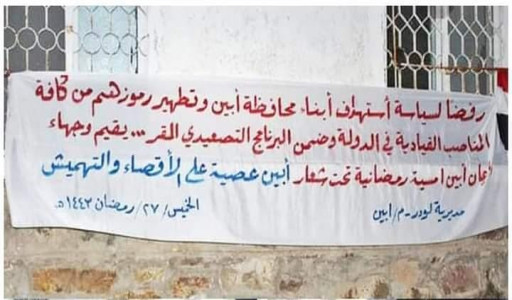 رفضا لسياسة أستهداف أبناء محافظة أبين وتطهير رموزهم من كافة
المناصب القيادية في الدولة وضمن البرنامج التصعيدي المقر... يقيم وجهاء
أعيان أبين امسية رمضانية تحت شعار أبين عصية على الأقصاء والتهميش
مديرية لودر - م/أبين الخميس/٢٧/رمضان ١٤٤٢ه